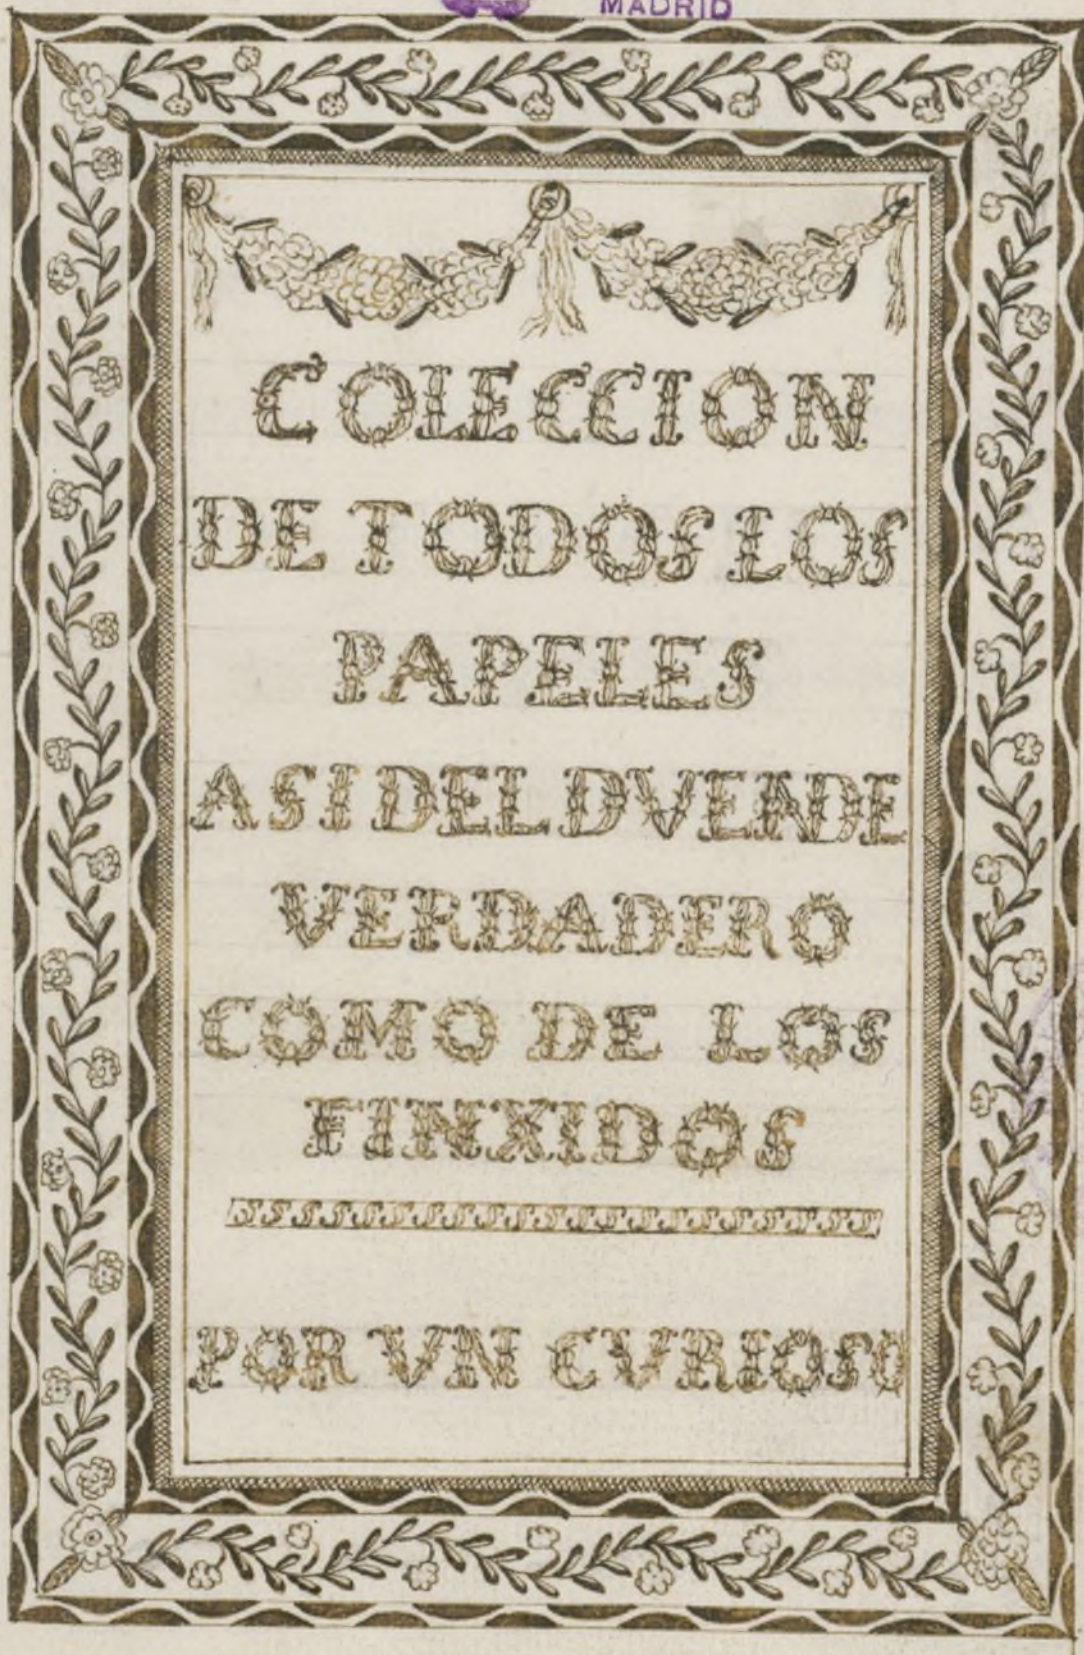 MADRID
COLECCION
DE TODOS LOS
PAPELES
ASI DEL DVENDE
VERDADERO
COMO DE LOS
FINXIDOS
POR VN CVRIOSO